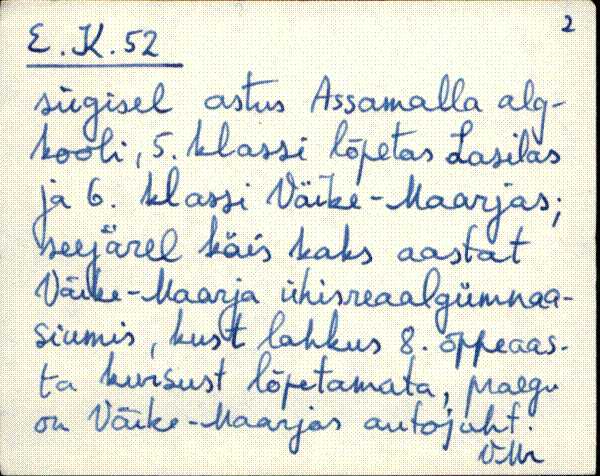 E.K.52
2
sügisel astus Assamalla alg-
kooli, 5. klassi lõpetas Lasilas
ja 6. klassi Väike-Maarjas;
seejärel käis kaks aastat
Väike-Maarja ühisreaalgümnaa-
siumis, kust lahkus 8. õppeaas-
ta kursust lõpetamata, praegu
on Väike-Maarjas autojuht.